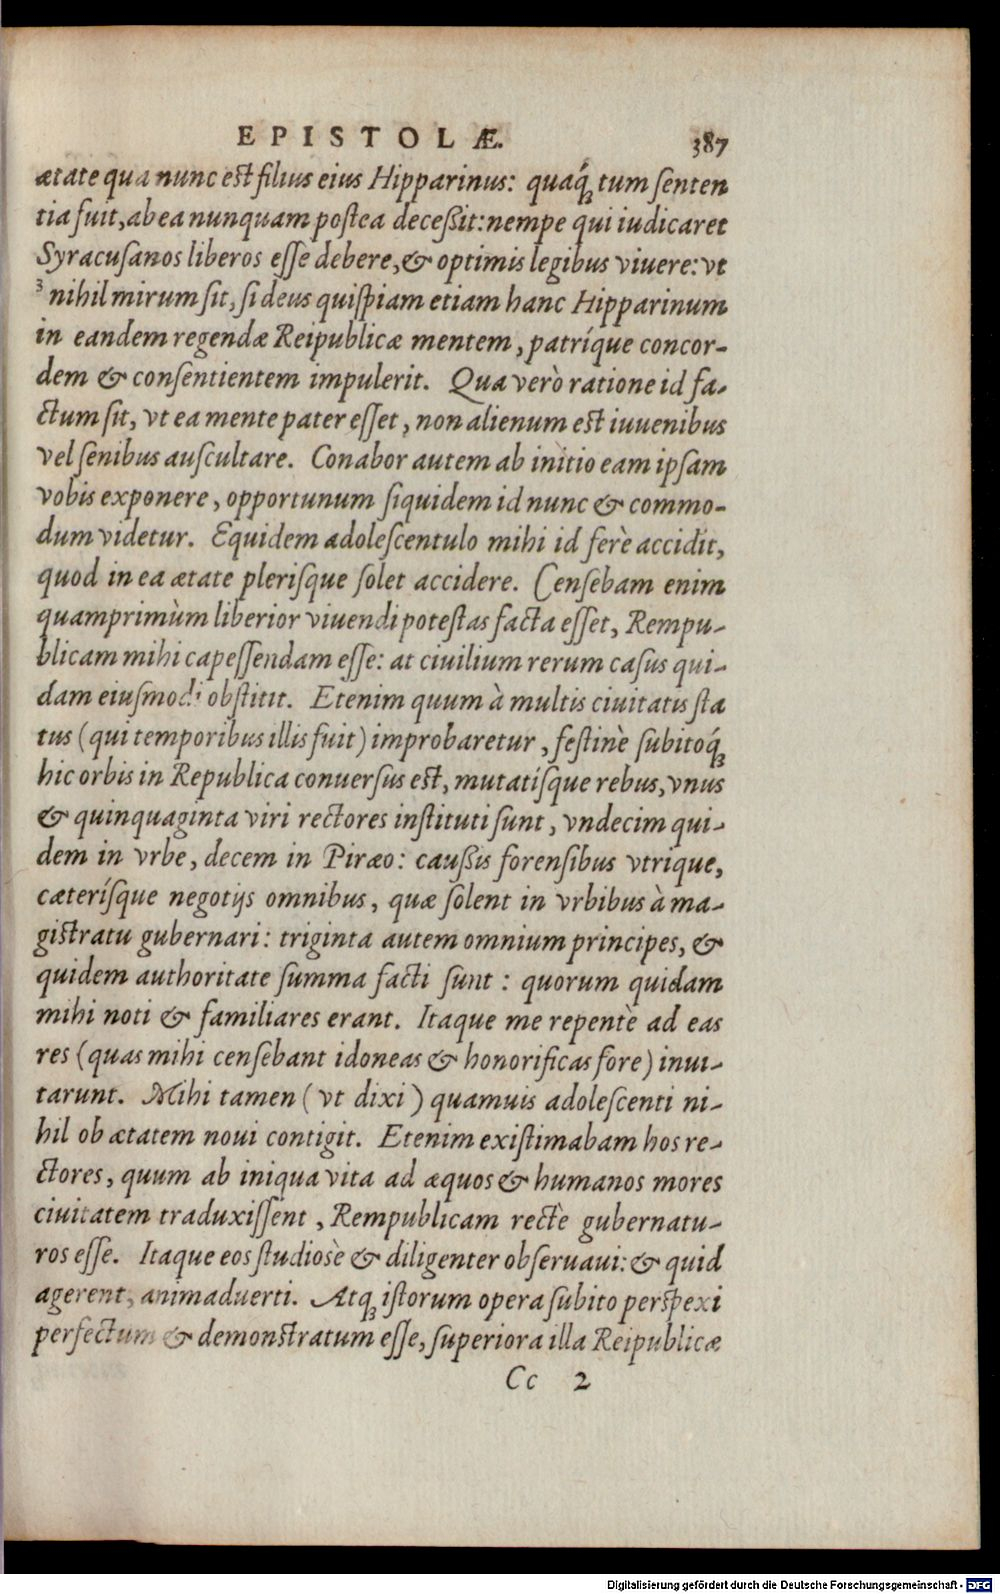 EPISTOLÆ. 387
ætate qua nunc est filius eius Hipparinus: quaq́; tum senten
tia fuit, ab ea nunquam postea deceßit: nempe qui iudicaret
Syracusanos liberos esse debere, & optimis legibus viuere: vt
3 nihil mirum sit, si deus quispiam etiam hanc Hipparinum
in eandem regendæ Reipublicæ mentem, patríque concor-
dem & consentientem impulerit. Qua verò ratione id fa-
ctum sit, vt ea mente pater esset, non alienum est iuuenibus
vel senibus auscultare. Conabor autem ab initio eam ipsam
vobis exponere, opportunum siquidem id nunc & commo-
dum videtur. Equidem adolescentulo mihi id ferè accidit,
quod in ea ætate plerisque solet accidere. Censebam enim
quamprimùm liberior viuendi potestas facta esset, Rempu-
blicam mihi capessendam esse: at ciuilium rerum casus qui-
dam eiusmodi obstitit. Etenim quum à multis ciuitatis sta
tus (qui temporibus illis fuit) improbaretur, festinè subitoq́;
hic orbis in Republica conuersus est, mutatísque rebus, vnus
& quinquaginta viri rectores instituti sunt, vndecim qui-
dem in vrbe, decem in Piræo: caußis forensibus vtrique,
cæterísque negotijs omnibus, quæ solent in vrbibus à ma-
gistratu gubernari: triginta autem omnium principes, &
quidem authoritate summa facti sunt: quorum quidam
mihi noti & familiares erant. Itaque me repentè ad eas
res (quas mihi censebant idoneas & honorificas fore) inui-
tarunt. Mihi tamen (vt dixi) quamuis adolescenti ni-
hil ob ætatem noui contigit. Etenim existimabam hos re-
ctores, quum ab iniqua vita ad æquos & humanos mores
ciuitatem traduxissent, Rempublicam rectè gubernatu-
ros esse. Itaque eos studiosè & diligenter obseruaui: & quid
agerent, animaduerti. Atq; istorum opera subito perspexi
perfectum & demonstratum esse, superiora illa Reipublicæ
Cc 2
Digitalisierung gefördert durch die Deutsche Forschungsgemeinschaft - DFG